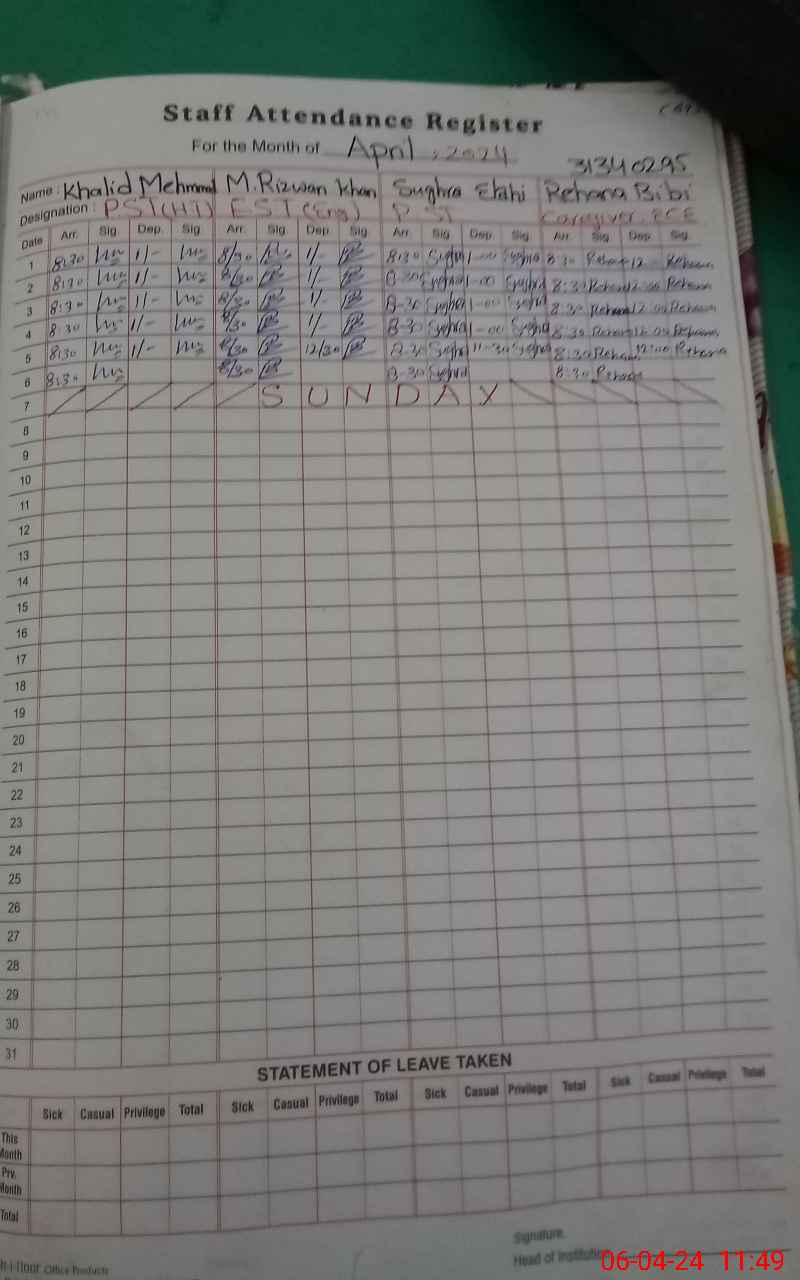 Staff Attendance Register
For the Month of April, 2024
31340295
Name : Khalid Mehmood M. Rizwan Khan Sughra Elahi Rehana Bibi
Designation : PST(HT) EST (Eng) PST Caregiver ECE
Date Arr. Sig Dep. Sig Arr. Sig Dep. Sig. Arr. Sig Dep. Sig Arr. Sig. Dep Sig.
1 8:30 1/- 8/30 1/- 8:30 Sughra 1-00 Sughra 8:30 Rehana 12 Rehana
2 8:30 1/- 8/30 1/- 8-30 Sughra 1-00 Sughra 8:30 Rehana 12:00 Rehana
3 8:30 1/- 8/30 1/- 8-30 Sughra 1-00 Sughra 8:30 Rehana 12:00 Rehana
4 8:30 1/- 8/30 1/- 8-30 Sughra 1-00 Sughra 8:30 Rehana 12:00 Rehana
5 8:30 1/- 8/30 12/30 8-30 Sughra 11-30 Sughra 8:30 Rehana 12:00 Rehana
6 8:30 8/30 8-30 Sughra 8:30 Rehana
7 SUNDAY
8
9
10
11
12
13
14
15
16
17
18
19
20
21
22
23
24
25
26
27
28
29
30
31
STATEMENT OF LEAVE TAKEN
Sick Casual Privilege Total Sick Casual Privilege Total Sick Casual Privilege Total Sick Casual Privilege Total
This Month
Prv. Month
Total
Signature.
Head of Institution
Office Products
06-04-24 11:49